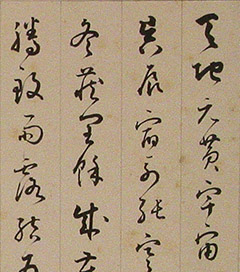 天地玄黃宇宙
昃辰宿列張寒
冬藏閏餘成歲
騰致雨露結為